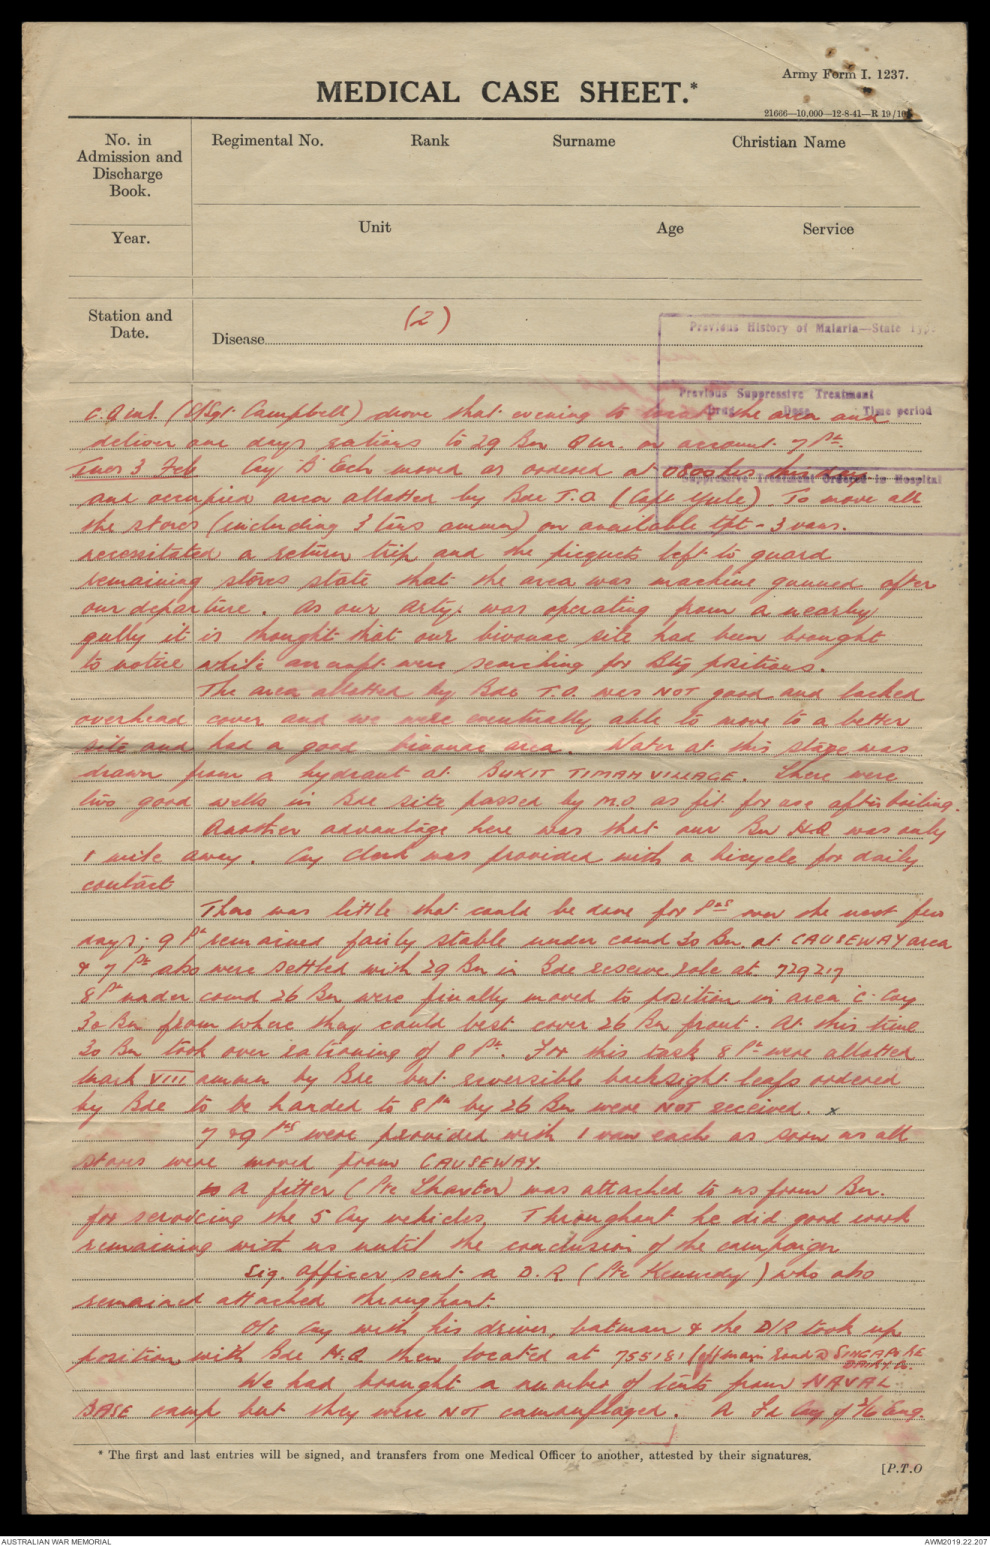 Army Form I. 1237.
MEDICAL CASE SHEET.*
21666—10,000—12-8-41—R 19/10
No. in
Admission and
Discharge
Book.
Regimental No. Rank Surname Christian Name
Unit Age Service
Year.
Station and
Date.
(2)
Disease
Previous History of Malaria—State
Previous Suppressive Treatment
Drug Dose Time period
Suppressive Treatment Ordered in Hospital
C.Q.M.S. (S/Sgt. Campbell) drove that evening to the area and
deliver one days rations to 29 Bn Q.M. on account 7 Pl.
Tues 3 Feb Coy 'B' Ech moved as ordered at 0800 hrs this day
and occupied area allotted by Bde T.O. (Capt Yule). To move all
the stores (including 3 tons ammn) on available tpt - 3 vans.
necessitated a return trip and the picquets left to guard
remaining stores state that the area was machine gunned after
our departure. As our arty. was operating from a nearby
gully it is thought that our bivouac site had been brought
to notice while aircraft were searching for Bty positions.
The area allotted by Bde T.O. was NOT good and lacked
overhead cover and we were eventually able to move to a better
site and had a good bivouac area. Water at this stage was
drawn from a hydrant at BUKIT TIMAH VILLAGE. There were
two good wells in Bde site passed by M.O. as fit for use after boiling.
Another advantage here was that our Bn H.Q. was only
1 mile away. Coy clerk was provided with a bicycle for daily
contact
There was little that could be done for Pls over the next few
days; 9 Pl remained fairly stable under comd 30 Bn. at CAUSEWAY area
& 7 Pl also were settled with 29 Bn in Bde reserve role at 729217
8 Pl under comd 26 Bn were finally moved to position in area 'C' Coy
30 Bn from where they could best cover 26 Bn front. At this time
30 Bn took over rationing of 8 Pl. For this task 8 Pl were allotted
Mark VIII ammn by Bde but reversible backsight leafs ordered
by Bde to be handed to 8 Pl by 26 Bn were NOT received. x
7 & 9 Pls were provided with 1 van each as soon as all
stores were moved from CAUSEWAY.
A fitter (Pte Thaxter) was attached to us from Bn.
for servicing the 5 Coy vehicles. Throughout he did good work
remaining with us until the conclusion of the campaign
Sig. Officer sent a D.R. (Pte Kennedy) who also
remained attached throughout.
O/C Coy with his driver, batman & the D/R took up
position with Bde H.Q. then located at 755181 (off main road @ SINGAPORE
DAIRY Co.
We had brought a number of tents from NAVAL
BASE camp but they were NOT camouflaged. A Fd Coy of 2/6 Eng.
* The first and last entries will be signed, and transfers from one Medical Officer to another, attested by their signatures.
[P.T.O
AUSTRALIAN WAR MEMORIAL
AWM2019.22.207